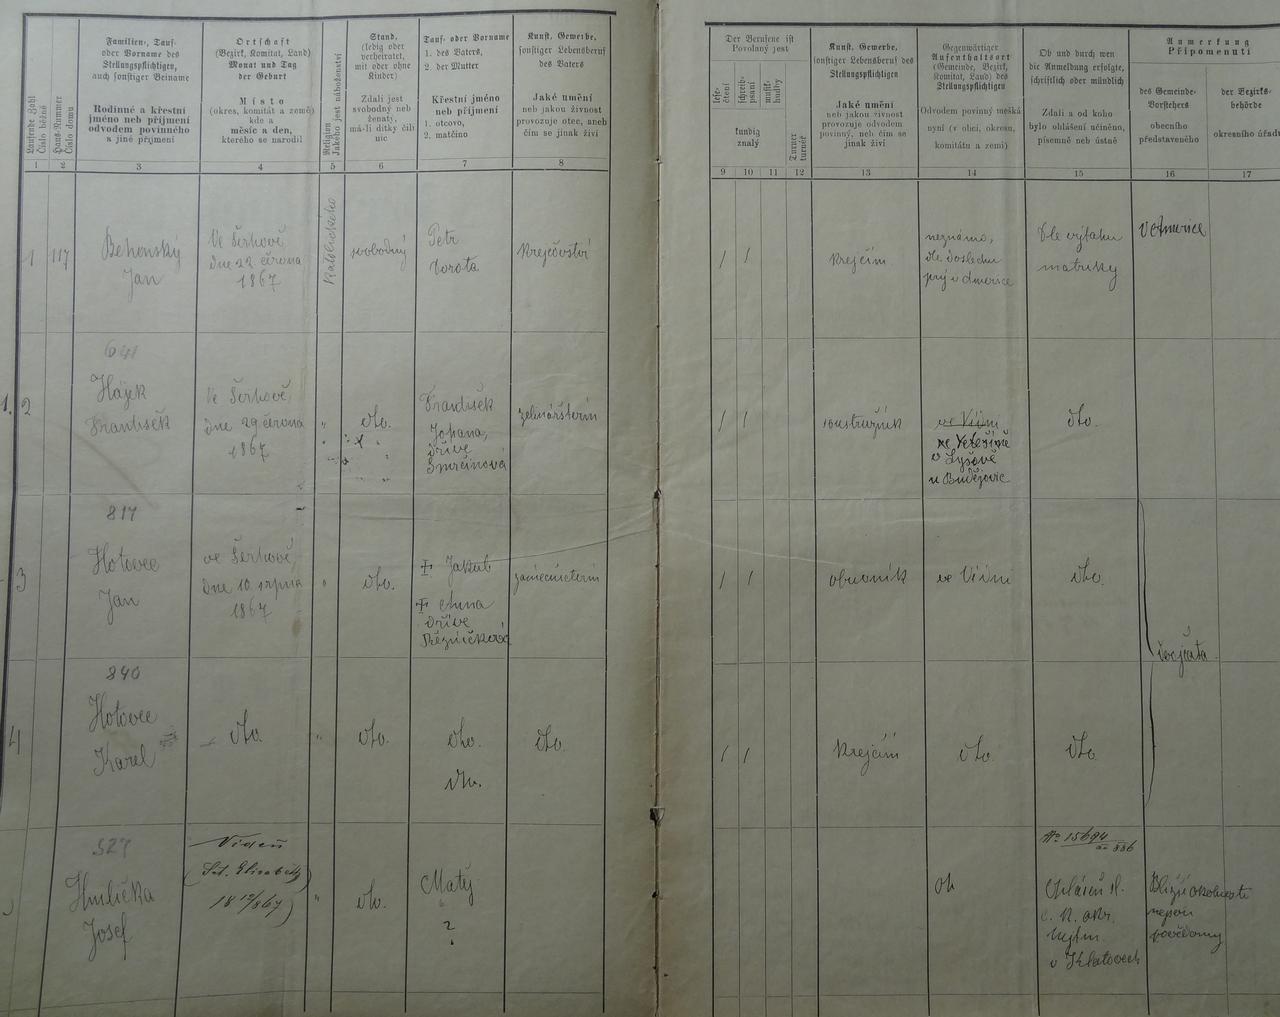 Laufende Zahl
Číslo běžné
Haus-Nummer
Číslo domu
Familien-, Tauf-
oder Vorname des
Stellungspflichtigen,
auch sonstiger Beiname
Rodinné a křestní
jméno neb příjmení
odvodem povinného
a jiné příjmení
Ortschaft
(Bezirk, Komitat, Land)
Monat und Tag
der Geburt
Místo
(okres, komitát a země)
kde a
měsíc a den,
kterého se narodil
Religion
Jakého jest náboženství
Stand,
(ledig oder
verheiratet,
mit oder ohne
Kinder)
Zdali jest
svobodný neb
ženatý,
má-li dítky čili
nic
Tauf- oder Vorname
1. des Vaters,
2. der Mutter
Křestní jméno
neb příjmení
1. otcovo,
2. matčino
Kunst, Gewerbe,
sonstiger Lebensberuf
des Vaters
Jaké umění
neb jakou živnost
provozuje otec, aneb
čím se jinak živí
1 2 3 4 5 6 7 8
1
117
Behenský
Jan
Ve Švihově
dne 22 června
1867
Katolického
svobodný
Petr
Dorota
Krejčovství
2
641
Hájek
František
Ve Švihově
dne 29 června
1867
"
dto.
František
Johana,
dříve
Smrčinová
3
817
Hotovec
Jan
ve Švihově,
dne 10 srpna
1867
"
dto.
Jakub
Anna
dříve
Řezníčková
4
840
Hotovec
Karel
dto.
"
dto.
dto.
dto.
dto.
527
Hmlička
Josef
Vídeň
"
dto.
Matěj
?
Der Berufene ist
Povolaný jest
lese-
čtení
schreib-
psaní
musik-
hudby
kundig
znalý
Turner
turnéř
Kunst, Gewerbe,
sonstiger Lebensberuf des
Stellungspflichtigen
Jaké umění
neb jakou živnost
provozuje odvodem
povinný, neb čím se
jinak živí
Gegenwärtiger
Aufenthaltsort
(Gemeinde, Bezirk,
Komitat, Land) des
Stellungspflichtigen
Odvodem povinný mešká
nyní (v obci, okresu,
komitátu a zemi)
Ob und durch wen
die Anmeldung erfolgte,
schriftlich oder mündlich
Zdali a od koho
bylo ohlášení učiněno,
písemně neb ústně
Anmerkung
Připomenutí
des Gemeinde-
Vorstehers
obecního
představeného
der Bezirks-
behörde
okresního úřadu
9 10 11 12 13 14 15 16 17
/ /
Krejčím
neznámo,
dle výtahu
matriky
/ /
ve Vídni
u Budějovic
dto.
/ /
obuvník
ve Vídni
dto.
dvojčata
/ /
Krejčím
dto.
dto.
No 15694
Bližší okolnosti
nejsou
povědomy
v Klatovech